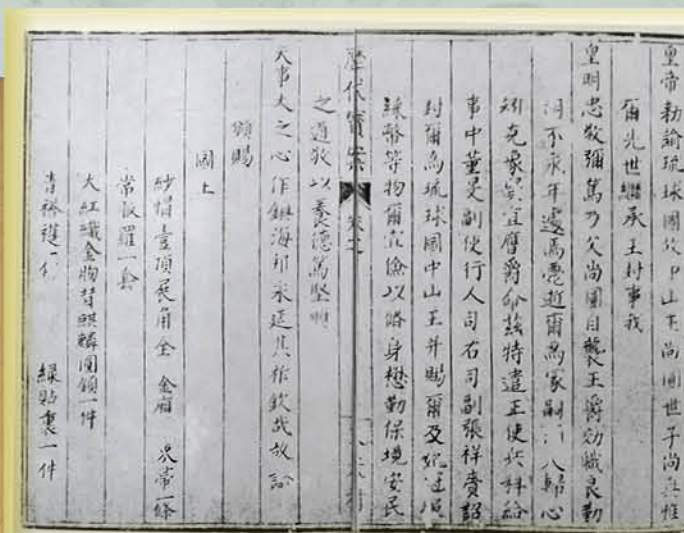 皇帝勅諭琉球國故中山王尚圓世子尚真惟
爾先世繼承王封事我
皇明忠敬彌篤乃父尚圓自襲王爵効職良勤
不永年遽焉薨逝爾為冢嗣人歸心
克象賢宜膺爵命茲特遣正使兵科給
事中董旻副使行人司右司副張祥齎詔
封爾為琉球國中山王并賜爾及妃冠服
綵幣等物爾宜儉以脩身懋勤保境安民
歷代寶案
之道敬以養德篤堅
天事大之心作鎮海邦永延其祚欽哉故諭
頒賜
國王
紗帽壹頂展角全 金廂 帶一條
常服羅一套
大紅織金胸背麒麟圓領一件
青褡䙱一件 綠貼裏一件